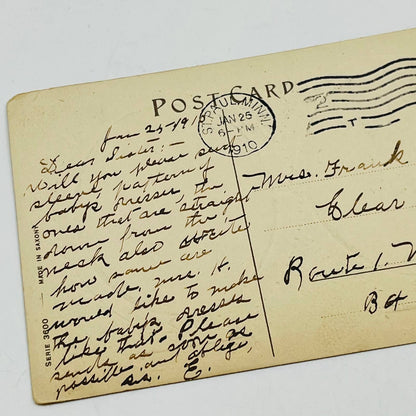 POST CARD
ST. PAUL, MINN.
JAN 25
6-PM
1910
Jan 25-1910
Dear Sister:-
Will you please send
sleeve pattern of
baby's dresses, the
ones that are straight
down from the
neck also write
how some are
made, Mrs. H.
would like to make
the baby's dresses
like that. Please
send as soon as
possible and oblige,
sis. E.
Mrs. Frank
Clear
Route 1.
SERIE 3600 MADE IN SAXONY